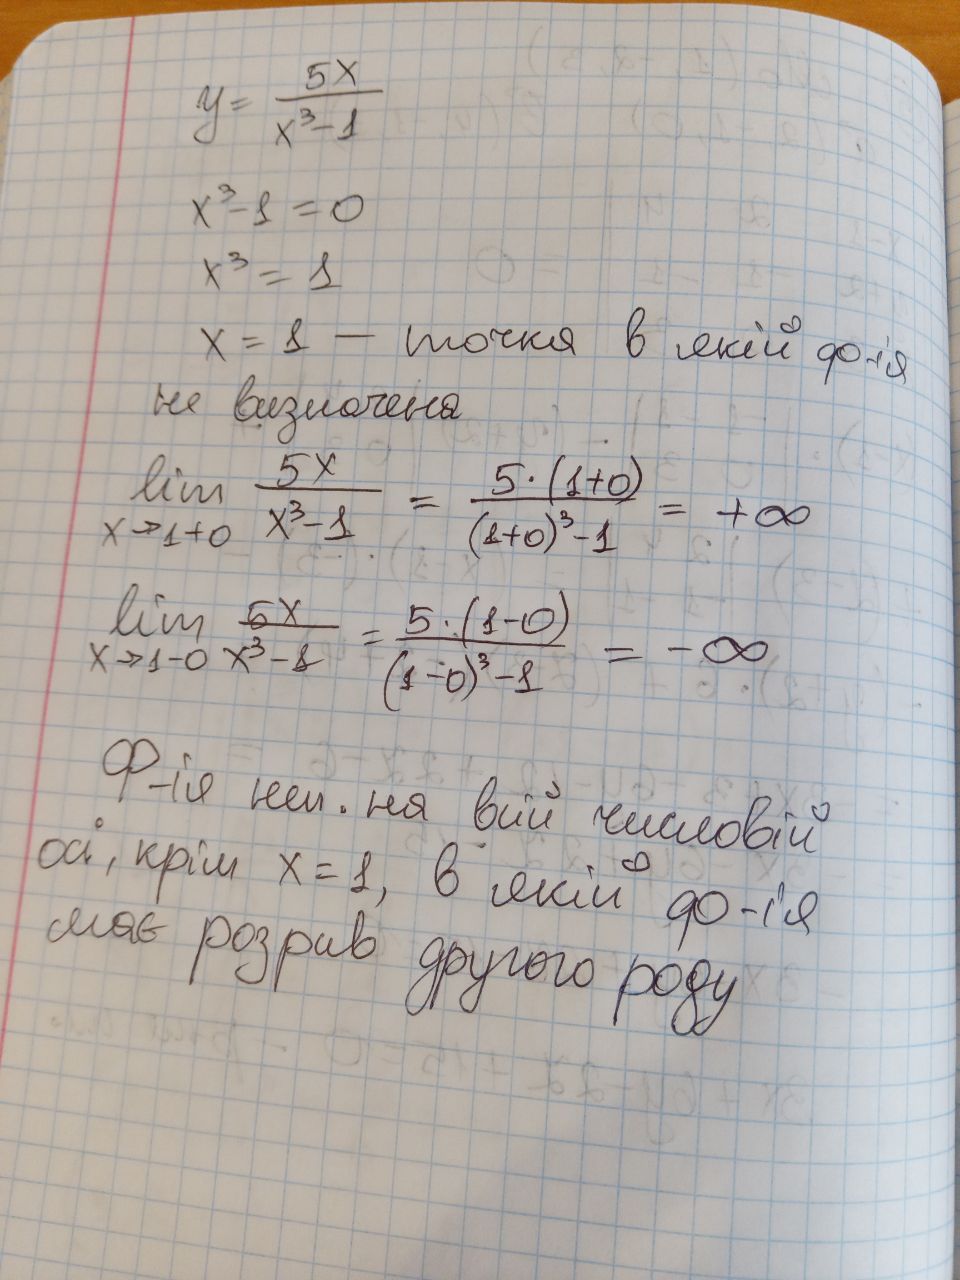 y = 5x / x³-1
x³-1 = 0
x³ = 1
x = 1 — точка в якій ф-ія
не визначена
lim x→1+0 5x / x³-1 = 5·(1+0) / (1+0)³-1 = +∞
lim x→1-0 5x / x³-1 = 5·(1-0) / (1-0)³-1 = -∞
Ф-ія неп. на всій числовій
осі, крім x = 1, в якій ф-ія
має розрив другого роду